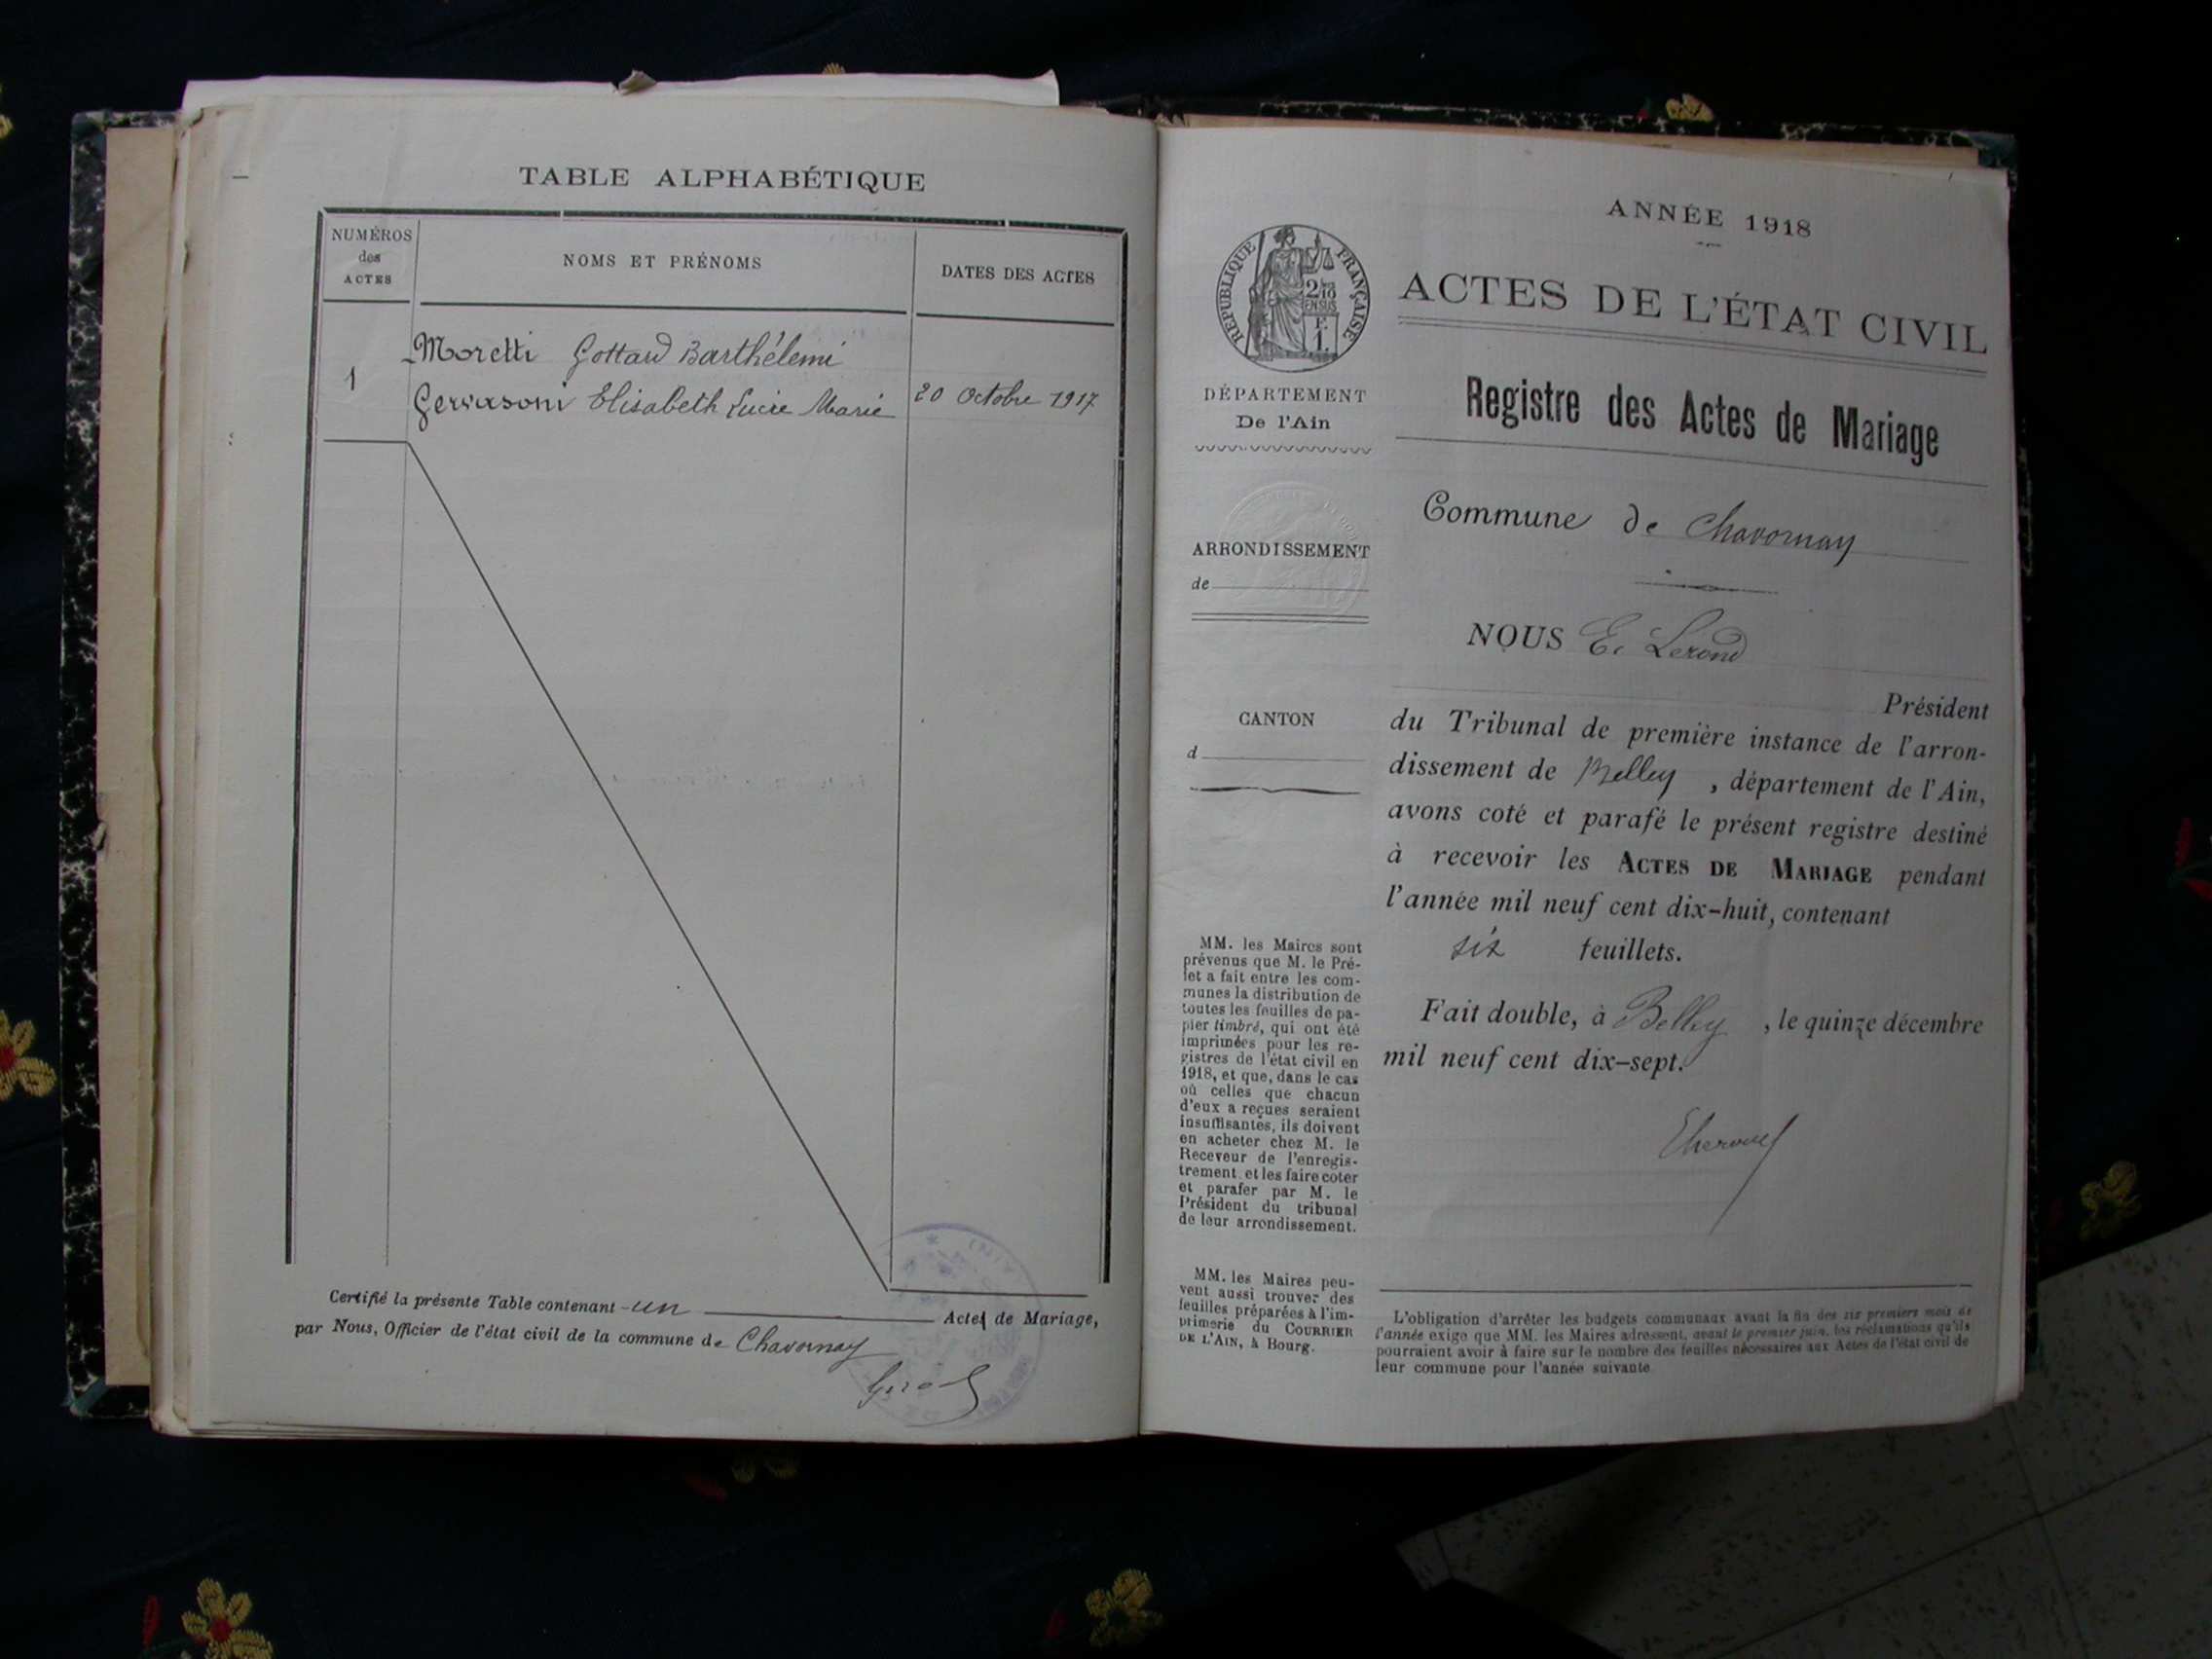 TABLE ALPHABÉTIQUE
NUMÉROS
des
ACTES
NOMS ET PRÉNOMS
DATES DES ACTES
1
Moretti Gottard Barthélemi
Gervasoni Elisabeth Lucie Marie
20 Octobre 1917
Certifié la présente Table contenant un Actes de Mariage,
par Nous, Officier de l'état civil de la commune de Chavornay
ANNÉE 1918
RÉPUBLIQUE FRANÇAISE
2/10
EN SUS
F.
1.
ACTES DE L'ÉTAT CIVIL
DÉPARTEMENT
De l'Ain
Registre des Actes de Mariage
Commune de Chavornay
ARRONDISSEMENT
de
NOUS E. Lerond
Président
CANTON
d
du Tribunal de première instance de l'arron-
dissement de Belley, département de l'Ain,
avons coté et parafé le présent registre destiné
à recevoir les ACTES DE MARIAGE pendant
l'année mil neuf cent dix-huit, contenant
six feuillets.
Fait double, à Belley, le quinze décembre
mil neuf cent dix-sept.
MM. les Maires sont
prévenus que M. le Pré-
fet a fait entre les com-
munes la distribution de
toutes les feuilles de pa-
pier timbré, qui ont été
imprimées pour les re-
gistres de l'état civil en
1918, et que, dans le cas
où celles que chacun
d'eux a reçues seraient
insuffisantes, ils doivent
en acheter chez M. le
Receveur de l'enregis-
trement et les faire coter
et parafer par M. le
Président du tribunal
de leur arrondissement.
MM. les Maires peu-
vent aussi trouver des
feuilles préparées à l'im-
primerie du COURRIER
DE L'AIN, à Bourg.
L'obligation d'arrêter les budgets communaux avant la fin des six premiers mois de
l'année exige que MM. les Maires adressent, avant le premier juin, les réclamations qu'ils
pourraient avoir à faire sur le nombre des feuilles nécessaires aux Actes de l'état civil de
leur commune pour l'année suivante